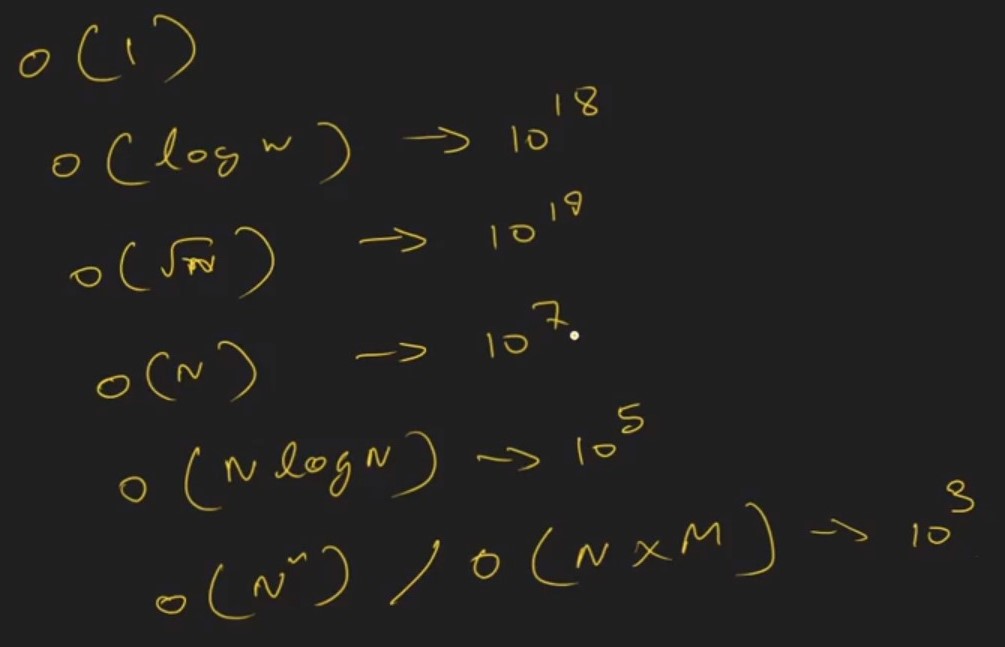 O(1)
O(log N) → 10^18
O(√N) → 10^18
O(N) → 10^7
O(N log N) → 10^5
O(N^2) / O(N × M) → 10^3